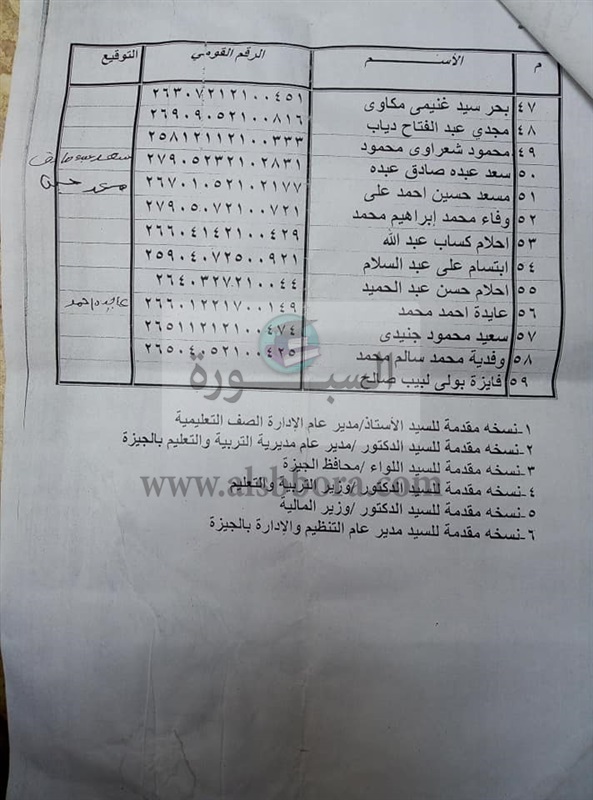 م الأســـم الرقم القومى التوقيع
٤٧ بحر سيد غنيمى مكاوى ٢٦٣٠٧٢١٢١٠٠٤٥١
٤٨ مجدي عبد الفتاح دياب ٢٦٩٠٩٠٥٢١٠٠٨١٦
٤٩ محمود شعراوى محمود ٢٥٨١٢١١٢١٠٠٣٣٣
٥٠ سعد عبده صادق عبده ٢٧٩٠٥٢٣٢١٠٢٨٣١
٥١ مسعد حسين احمد على ٢٦٧٠١٠٥٢١٠٢١٧٧
٥٢ وفاء محمد إبراهيم محمد ٢٧٩٠٥٠٧٢١٠٠٧٢١
٥٣ احلام كساب عبد الله ٢٦٦٠٤١٤٢١٠٠٤٢٩
٥٤ ابتسام على عبد السلام ٢٥٩٠٤٠٧٢٥٠٠٩٢١
٥٥ احلام حسن عبد الحميد ٢٦٤٠٣٢٧٢١٠٠٤٤
٥٦ عايدة احمد محمد ٢٦٦٠١٢٢١٧٠٠١٤٩ عايده احمد
٥٧ سعيد محمود جنيدى ٢٦٥١١٢١٢١٠٠٤٧٤
٥٨ وفدية محمد سالم محمد ٢٦٥٠٤٠٥٢١٠٠٤٢٥
٥٩ فايزة بولى لبيب صالح
السبورة
١-نسخه مقدمة للسيد الأستاذ/مدير عام الإدارة الصف التعليمية
٢-نسخه مقدمة للسيد الدكتور /مدير عام مديرية التربية والتعليم بالجيزة
٣-نسخه مقدمة للسيد اللواء /محافظ الجيزة
٤-نسخه مقدمة للسيد الدكتور /وزير التربية والتعليم
www.alsbbora.com
٥-نسخه مقدمة للسيد الدكتور /وزير المالية
٦-نسخه مقدمة للسيد مدير عام التنظيم والإدارة بالجيزة